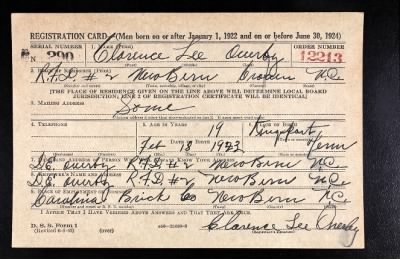 REGISTRATION CARD—(Men born on or after January 1, 1922 and on or before June 30, 1924)
SERIAL NUMBER 1. NAME (Print) ORDER NUMBER
N 290 Clarence Lee Ouerby 12213
2. PLACE OF RESIDENCE (Print)
R.F.D. #2 New Bern Craven N.C.
[THE PLACE OF RESIDENCE GIVEN ON THE LINE ABOVE WILL DETERMINE LOCAL BOARD
JURISDICTION; LINE 2 OF REGISTRATION CERTIFICATE WILL BE IDENTICAL]
3. MAILING ADDRESS
Same
4. TELEPHONE 5. AGE IN YEARS 6. PLACE OF BIRTH
19 Kingsport
DATE OF BIRTH
Feb 18 1923 Tenn
7. NAME AND ADDRESS OF PERSON WHO WILL ALWAYS KNOW YOUR ADDRESS
D.E. Ouerby R.F.D. #2 New Bern N.C.
8. EMPLOYER'S NAME AND ADDRESS
D.E. Ouerby R.F.D. #2 New Bern N.C.
9. PLACE OF EMPLOYMENT OR BUSINESS
Carolina Brick Co New Bern N.C.
I AFFIRM THAT I HAVE VERIFIED ABOVE ANSWERS AND THAT THEY ARE TRUE.
D. S. S. Form 1
(Revised 6-9-42) (over) Clarence Lee Ouerby